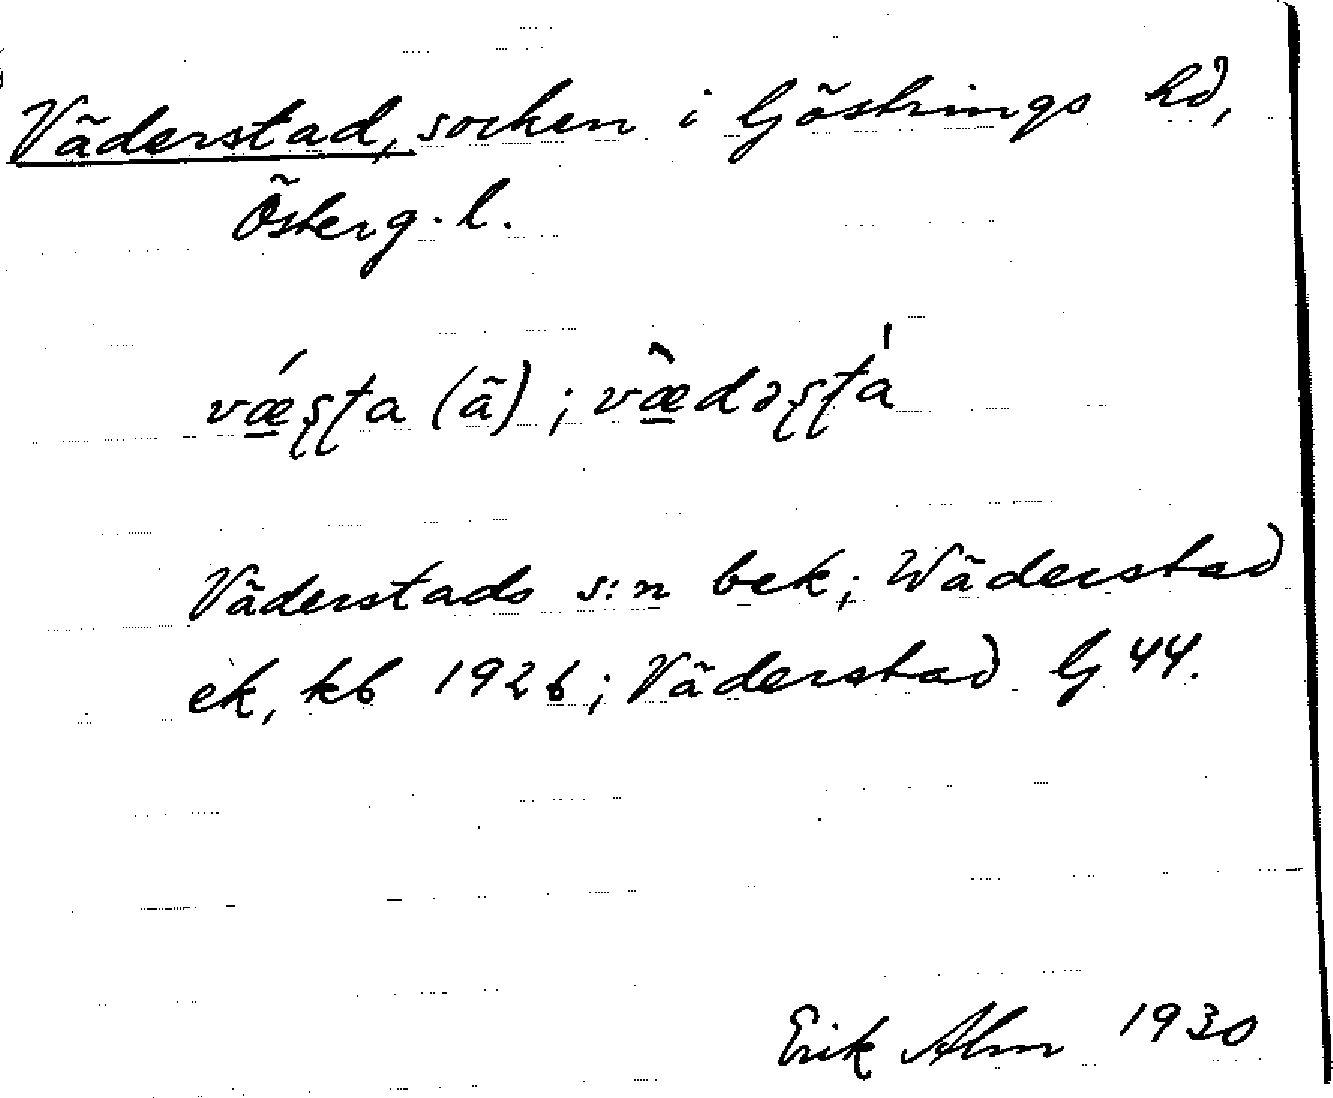 Väderstad, socken i Göstrings hd,
Österg. l.
vǽ̱ʂʈa (ä) ; væ̱̀dəʂʈá
Väderstads s:n bek; Wäderstad
ek, kb 1926; Väderstad G 44.
Erik Alm 1930